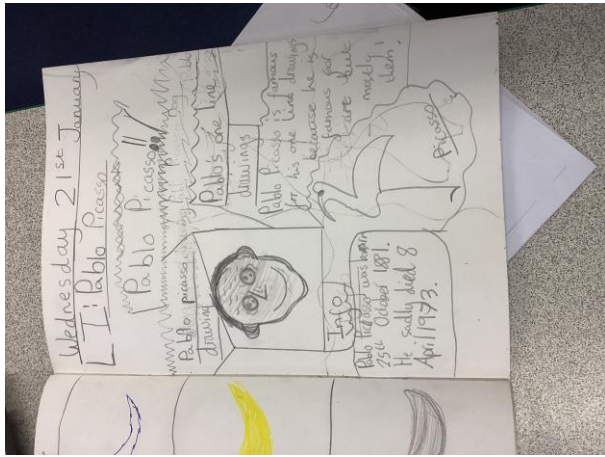 Wednesday 21st January
LI: Pablo Picasso
Pablo Picasso
Pablo picasso
drawing
Pablo's one line
drawings
Pablo Picasso is famous
for his one line drawings
because he is
famous for
are but
mostly
them.
Picasso
Info
Pablo Picasso was born
25th October 1881.
He sadly died 8
April 1973.